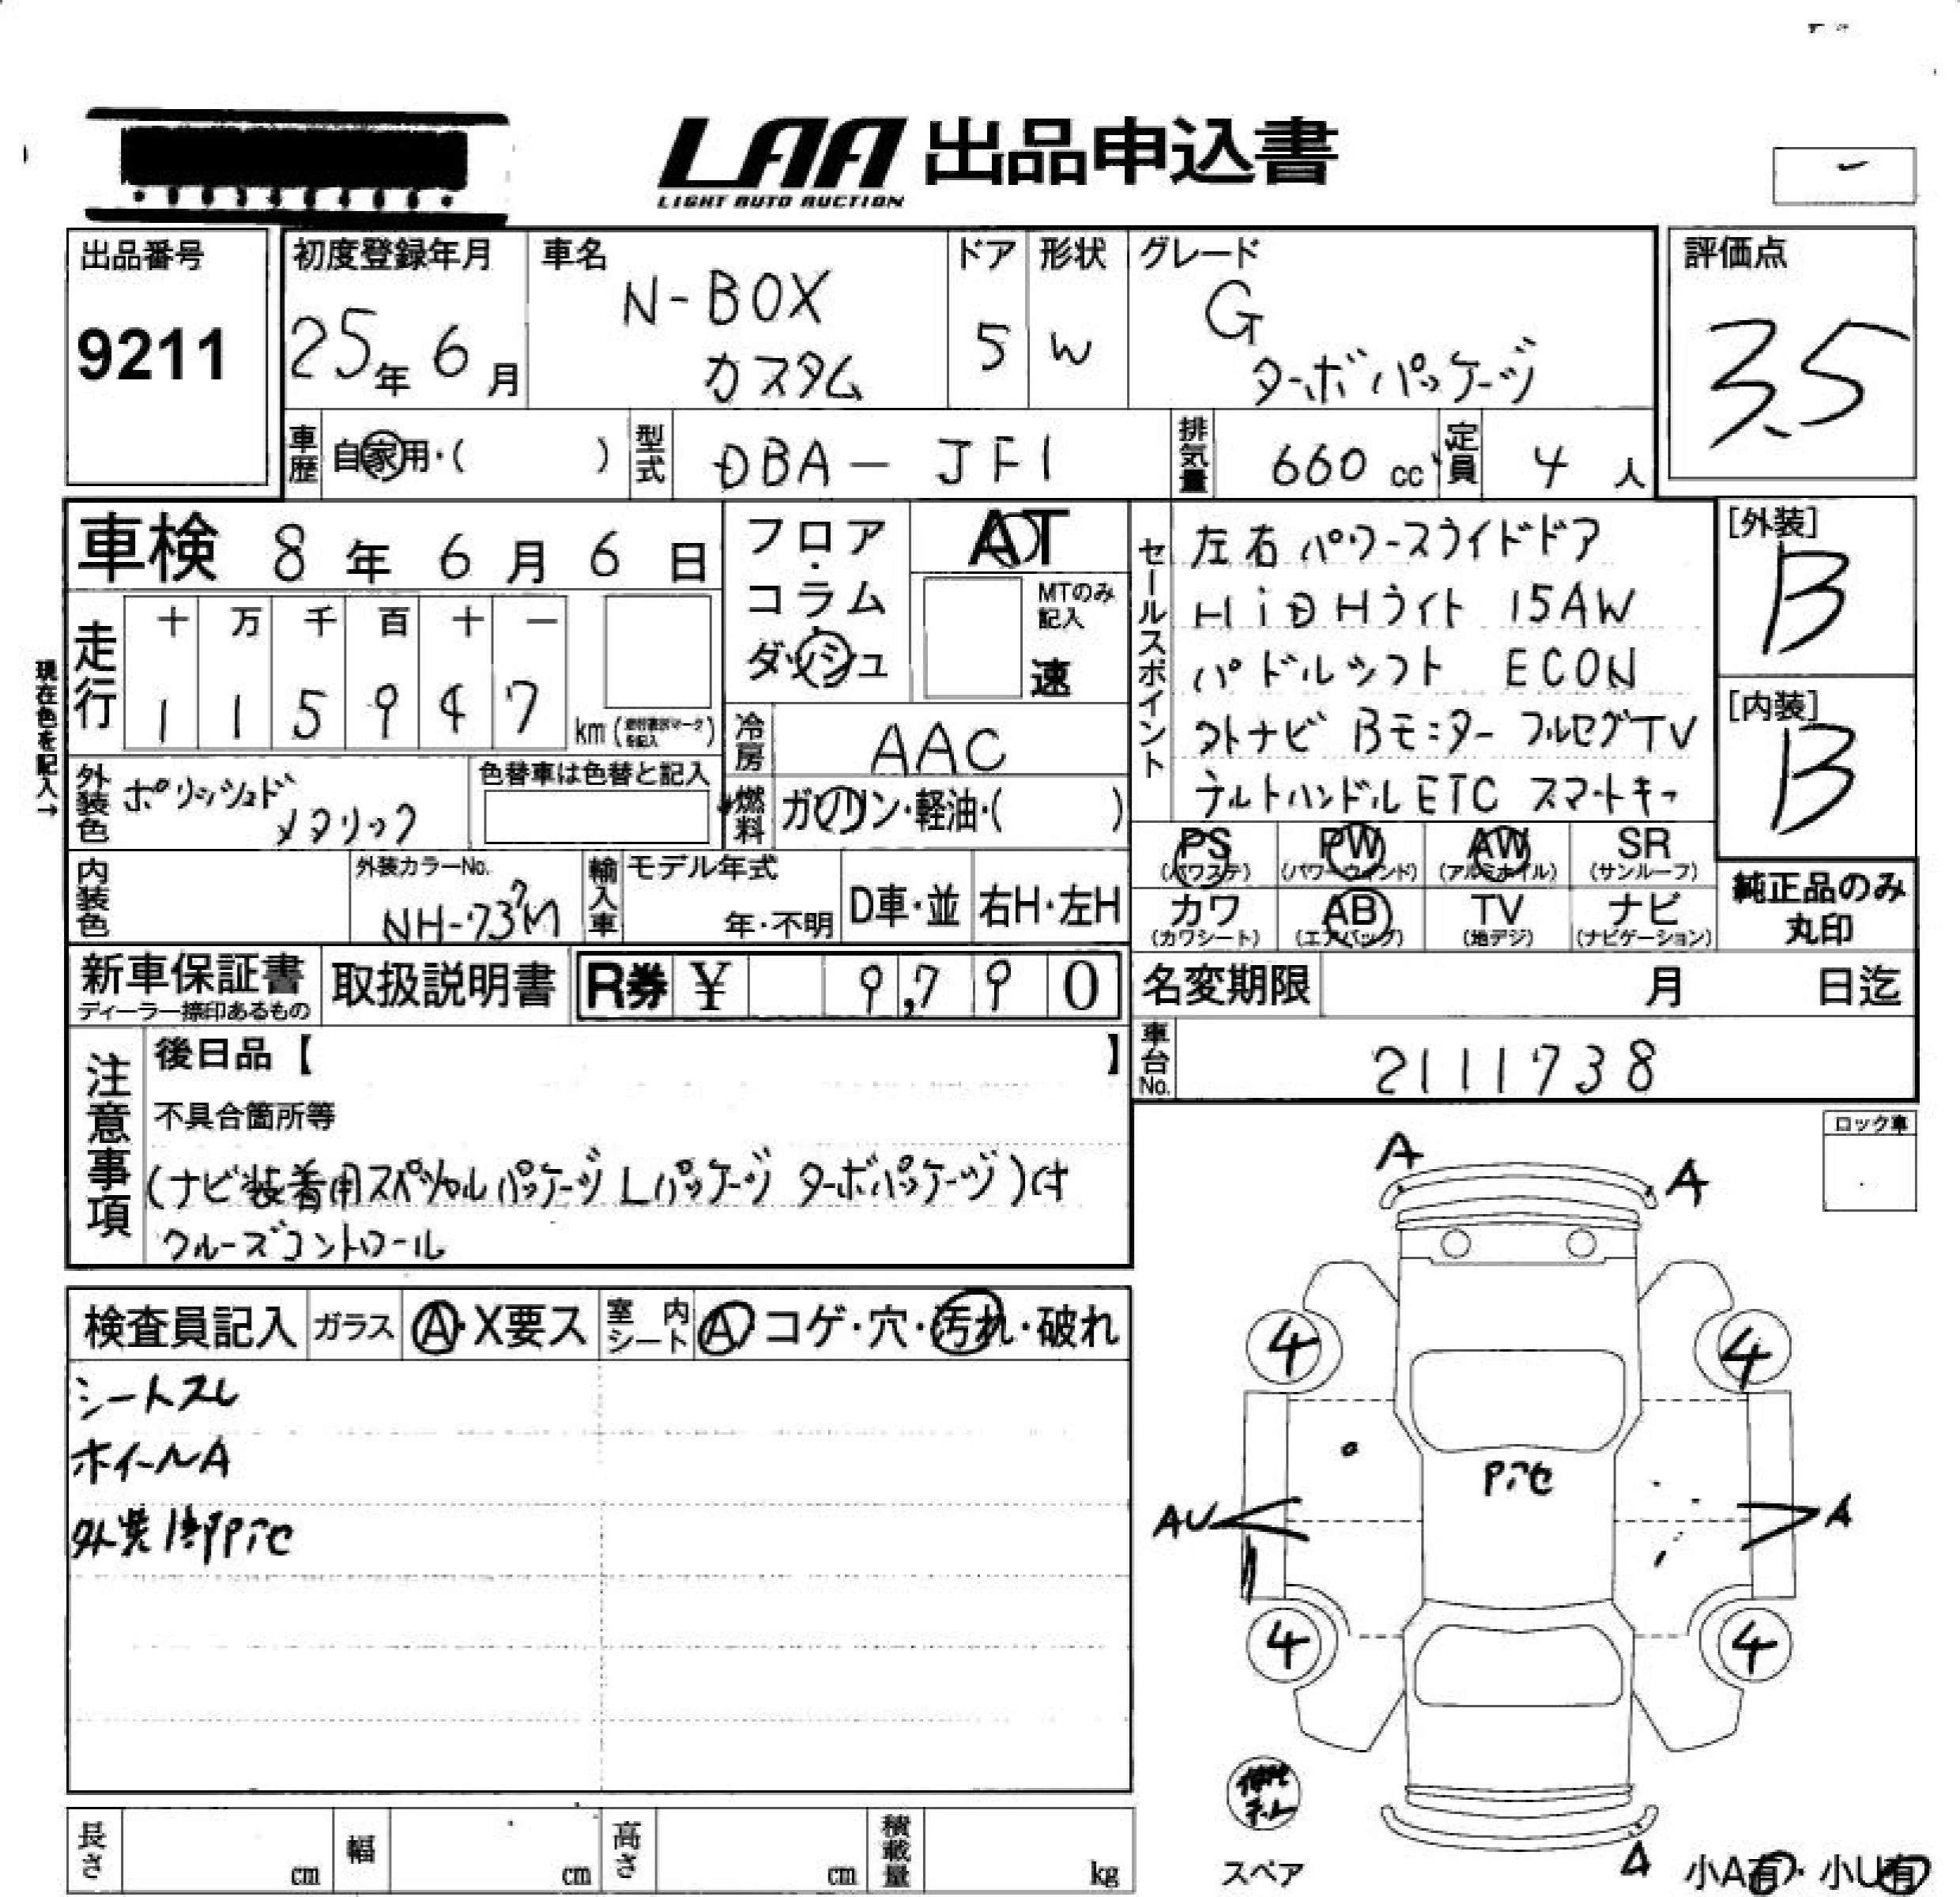 LAA 出品申込書
LIGHT AUTO AUCTION
出品番号
9211
初度登録年月
25年 6月
車名
N-BOX
カスタム
ドア
5
形状
W
グレード
G
ターボパッケージ
評価点
3.5
車歴 自家用・( )
型式 DBA-JF1
排気量 660 cc
定員 4 人
車検 8年 6月 6日
フロア・コラム・ダッシュ
AT
MTのみ記入
速
走行
十 万 千 百 十 一
1 1 5 9 4 7
km
現在色を記入→
冷房 AAC
外装色 ポリッシュド
メタリック
色替車は色替と記入
燃料 ガソリン・軽油・( )
内装色
外装カラーNo.
NH-737M
輸入車 モデル年式
年・不明
D車・並
右H・左H
セールスポイント
左右パワースライドドア
HiDHライト 15AW
パドルシフト ECON
外ナビ Bモニター フルセグTV
チルトハンドル ETC スマートキー
[外装]
B
[内装]
B
PS (パワステ)
PW (パワーウインド)
AW (アルミホイル)
SR (サンルーフ)
カワ (カワシート)
AB (エアバッグ)
TV (地デジ)
ナビ (ナビゲーション)
純正品のみ
丸印
新車保証書
ディーラー捺印あるもの
取扱説明書
R券 ¥ 9,790
名変期限 月 日迄
車台No. 2111738
注意事項
後日品【 】
不具合箇所等
(ナビ装着用スペシャルパッケージ Lパッケージ ターボパッケージ)付
クルーズコントロール
ロック車
検査員記入
ガラス A・X要ス
室内シート A・コゲ・穴・汚れ・破れ
シートスレ
ホイールA
外装1部Pイセ
A
A
4
4
Pイセ
AU
A
4
4
スペア
A
小A有・小U有
長さ cm
幅 cm
高さ cm
積載量 kg